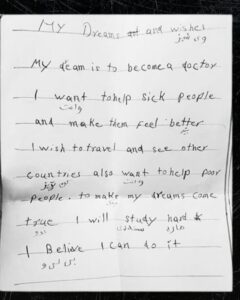 My Dreams and wishes
وی شیز
My deam is to become a doctor
I want to help sick people
وانت
and make them feel better
I wish to travel and see other
countries also want to help poor
وانت
people. to make my dreams come
true I will study hard &
هارد
I Belive I can do it
بی لی و